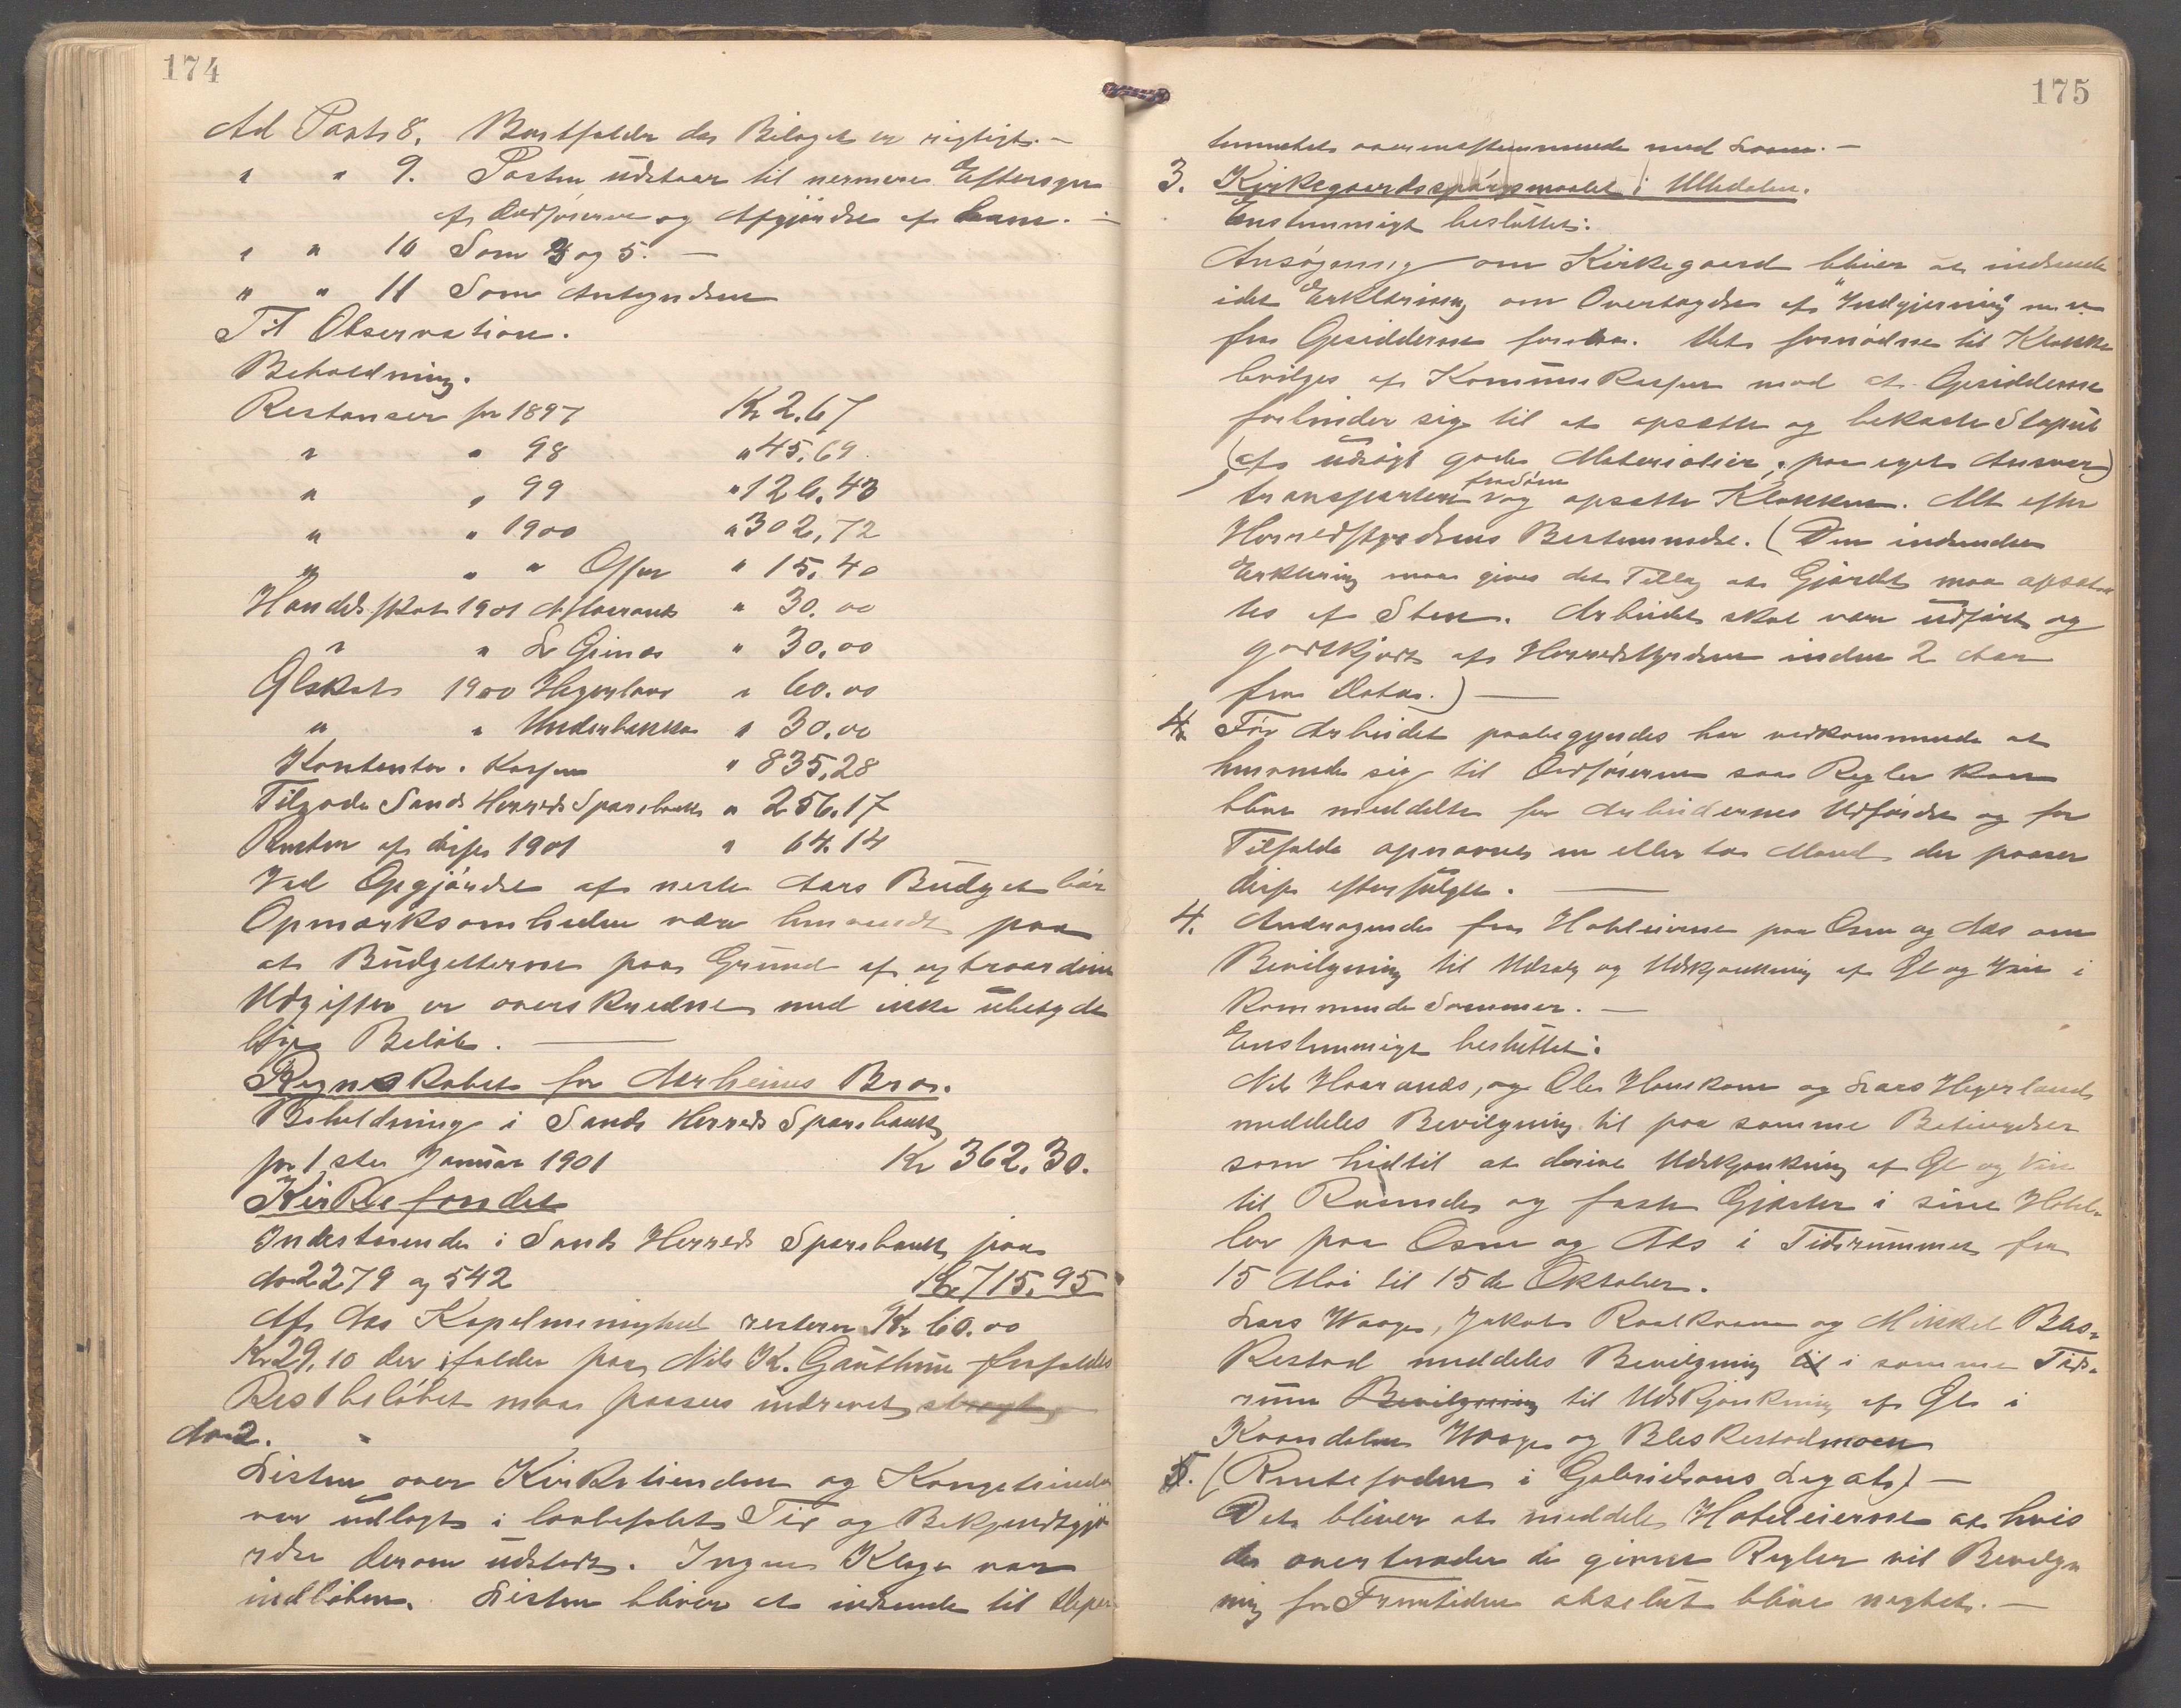 174
Ad Post 8. Bortfalder da Bilaget er rigtigt. —
" " 9. Posten udstaar til nermere Eftersyn
af Ordføreren og Afgjørelse af ham. —
" " 10 Som 3 og 5. —
" " 11 Som Antegnelsen
Til Observation.
Beholdning.
Restanser for 1897 Kr 2.67
" " 98 " 45.69
" " 99 " 126.43
" " 1900 " 302,72
" " " Offer " 15.40
Handelsskat 1901 " 30.00
" " L Gjenes " 30.00
Ølskat 1900 Hegerland " 60.00
" " Underbakke " 30.00
Kontanter i Kassen " 835,28
Tilgode Sands Herreds Sparebank " 256.17
Renten af disse 1901 " 64.14
Ved Opgjørelse af neste Aars Budget bør
Opmærksomheden være henvendt paa
at Budgetterne paa Grund af extraordine
Udgifter er overskredne med ikke ubetyde
lige Beløb. —
Regnskabet for Aarheims Bro.
Beholdning i Sands Herreds Sparebank
pr 1ste Januar 1901 Kr 362.30.
Kirkefondet
Indestaaende i Sands Herreds Sparebank paa
No 2279 og 542 Kr 715.95
Af Aas Kapelmenighed resterer Kr 60.00
Kr 29.10 der falder paa Nils K. Gauthun frafaldes
Restbeløbet maa passes inddrevet strengt
No 2.
Listen over Kirketienden og Kongetienden
var udlagt i lovbefalet Tid og Bekjendtgjø
relse derom udstedt. Ingen Klage var
indløben. Listen bliver at indsende til Depar
175
tementet overensstemmende med Loven. —
3. Kirkegaardsspørgsmaalet i Ulladalen.
Enstemmigt besluttet:
Ansøgning om Kirkegaard bliver at indsende
idet Erklæring om Overtagelse af "Indgjerning" m. v.
fra Opsidderne foreligger. Det fornødne til Klokke
bevilges af Kommunekassen mod at Opsidderne
forbinder sig til at opsætte og bekoste Støpul
(af udsøgt gode Materialier; paa eget Ansvar)
transportere fradøm og opsætte Klokken. Alt efter
Herredsstyrelsens Bestemmelse. (Den indsendte
Erklæring maa gives det Tillæg at Gjærdet maa opsæt
tes af Sten. Arbeidet skal være udført og
godkjendt af Herredsstyrelsen inden 2 Aar
fra Dato.) —
4. Før Arbeidet paabegyndes har vedkommende at
henvende sig til Ordføreren saa Regler kan
blive meddelte for Arbeidernes Udførelse og for
Tilfælde opnævnes en eller to Mænd der paaser
disse efterfulgte. —
4. Andragende fra Hoteleierne paa Osen og Aas om
Bevilgning til Udsalg og Udskjænkning af Øl og Vin i
kommende Sommer. —
Enstemmigt besluttet:
Nils Haarands, og Ole Honskam og Lars Hegerland
meddeles Bevilgning til paa samme Betingelser
som hidtil at drive Udskjænkning af Øl og Vin
til Reisende og faste Gjæster i sine Hotel-
ler paa Osen og Aas i Tidsrummet fra
15 Mai til 15de Oktober.
Lars Waage, Jakob Roalkvam og Mikkel Bles-
kestad meddeles Bevilgning til i samme Tids-
rum Bevilgning til Udskjænkning af Øl i
Kvandalen Waage og Bleskestadmoen
5. (Rentefoden i Gabrielsens Legat) —
Det bliver at meddele Hoteleierne at hvis
de overtræder de givne Regler vil Bevilgn
ing for Fremtiden absolut blive negtet. —